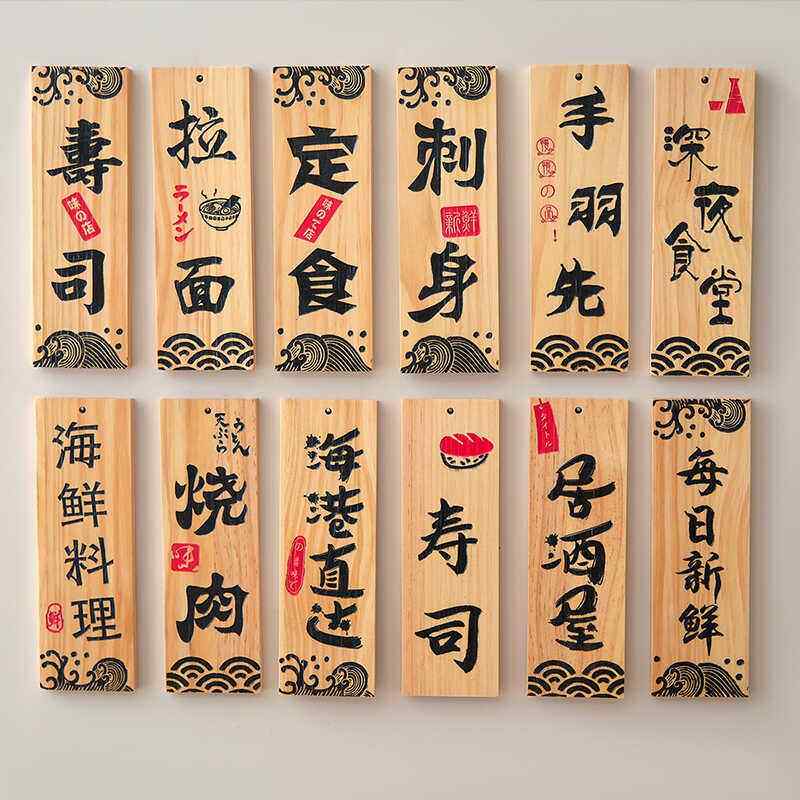 壽司
味の店
拉面
ラーメン
定食
味のご店
刺身
新鮮
手羽先
深夜食堂
海鮮料理
鮮
うどん
天ぷら
烧肉
味
海港直达
寿司
タイトル
居酒屋
每日新鮮